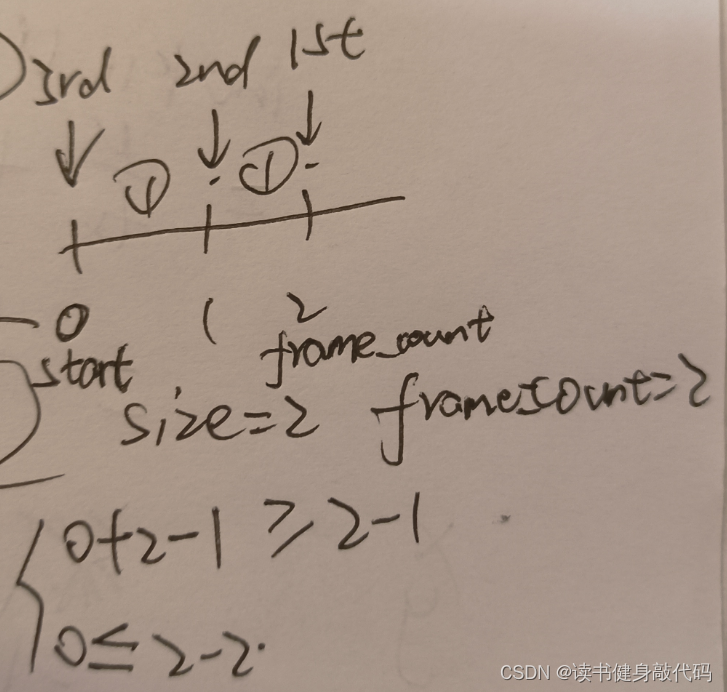 3rd 2nd 1st
① ①
0 1 2
start frame_count
size=2 frame_count=2
0+2-1 ≥ 2-1
0 ≤ 2-2
CSDN @读书健身敲代码